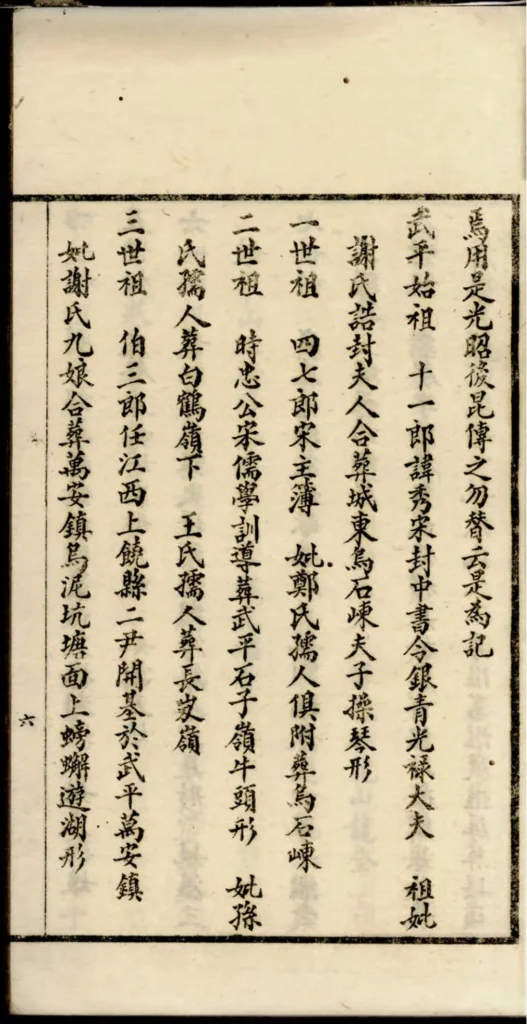 焉用是光昭後昆傳之勿替云是為記
武平始祖　十一郎諱秀宋封中書令銀青光祿大夫　祖妣
謝氏誥封夫人合葬城東烏石崠夫子操琴形
一世祖　四七郎宋主簿　妣鄭氏孺人俱附葬烏石崠
二世祖　時忠公宋儒學訓導葬武平石子嶺牛頭形　妣孫
氏孺人葬白鶴嶺下　王氏孺人葬長岌嶺
三世祖　伯三郎任江西上饒縣二尹開基於武平萬安鎮
妣謝氏九娘合葬萬安鎮烏泥坑塘面上螃蠏遊湖形
六